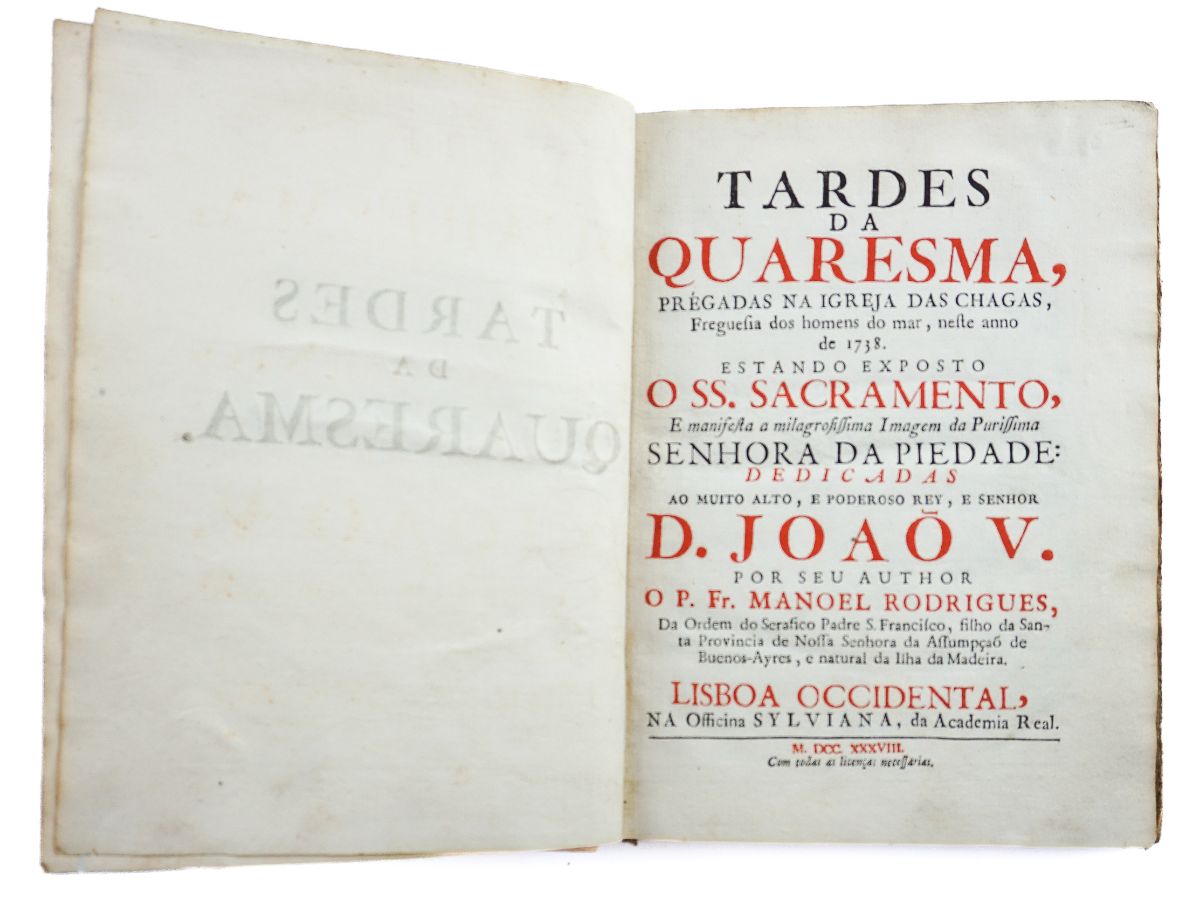 TARDES
DA
QUARESMA.
TARDES
DA
QUARESMA,
PRÉGADAS NA IGREJA DAS CHAGAS,
Freguesia dos homens do mar, neste anno
de 1738.
ESTANDO EXPOSTO
O SS. SACRAMENTO,
E manifesta a milagrosissima Imagem da Purissima
SENHORA DA PIEDADE:
DEDICADAS
AO MUITO ALTO, E PODEROSO REY, E SENHOR
D. JOAÕ V.
POR SEU AUTHOR
O P. Fr. MANOEL RODRIGUES,
Da Ordem do Serafico Padre S. Francisco, filho da San-
ta Provincia de Nossa Senhora da Assumpçaõ de
Buenos-Ayres, e natural da Ilha da Madeira.
LISBOA OCCIDENTAL,
NA Officina SYLVIANA, da Academia Real.
M. DCC. XXXVIII.
Com todas as licenças necessarias.